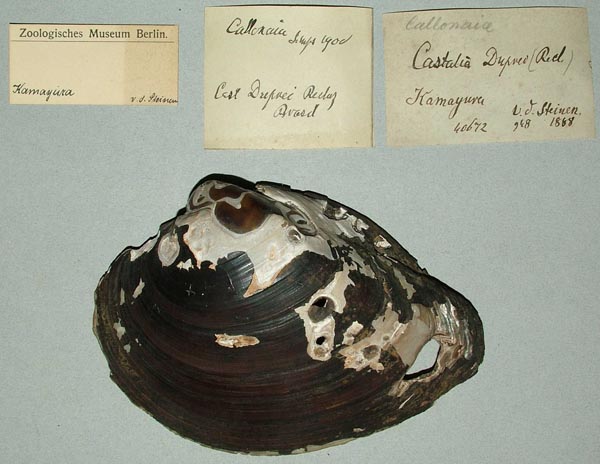 Zoologisches Museum Berlin.
Kamayura
v. d. Steinen
Callonaia
Simps 1900
Cast Duprei Recluz
Callonaia
Castalia Duprei (Recl)
Kamayura
v. d. Steinen.
40672
1888